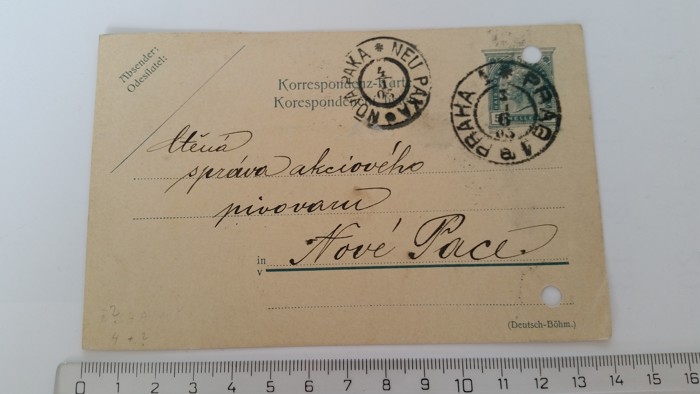 Absender:
Odesílatel:
Korrespondenz-Karte
NOVÁ PAKA * NEU PAKA
PRAHA 1 * PRAG 1
Ctěná
správa akciového
pivovaru
in
v
Nové Pace
(Deutsch-Böhm.)
0 1 2 3 4 5 6 7 8 9 10 11 12 13 14 15 16